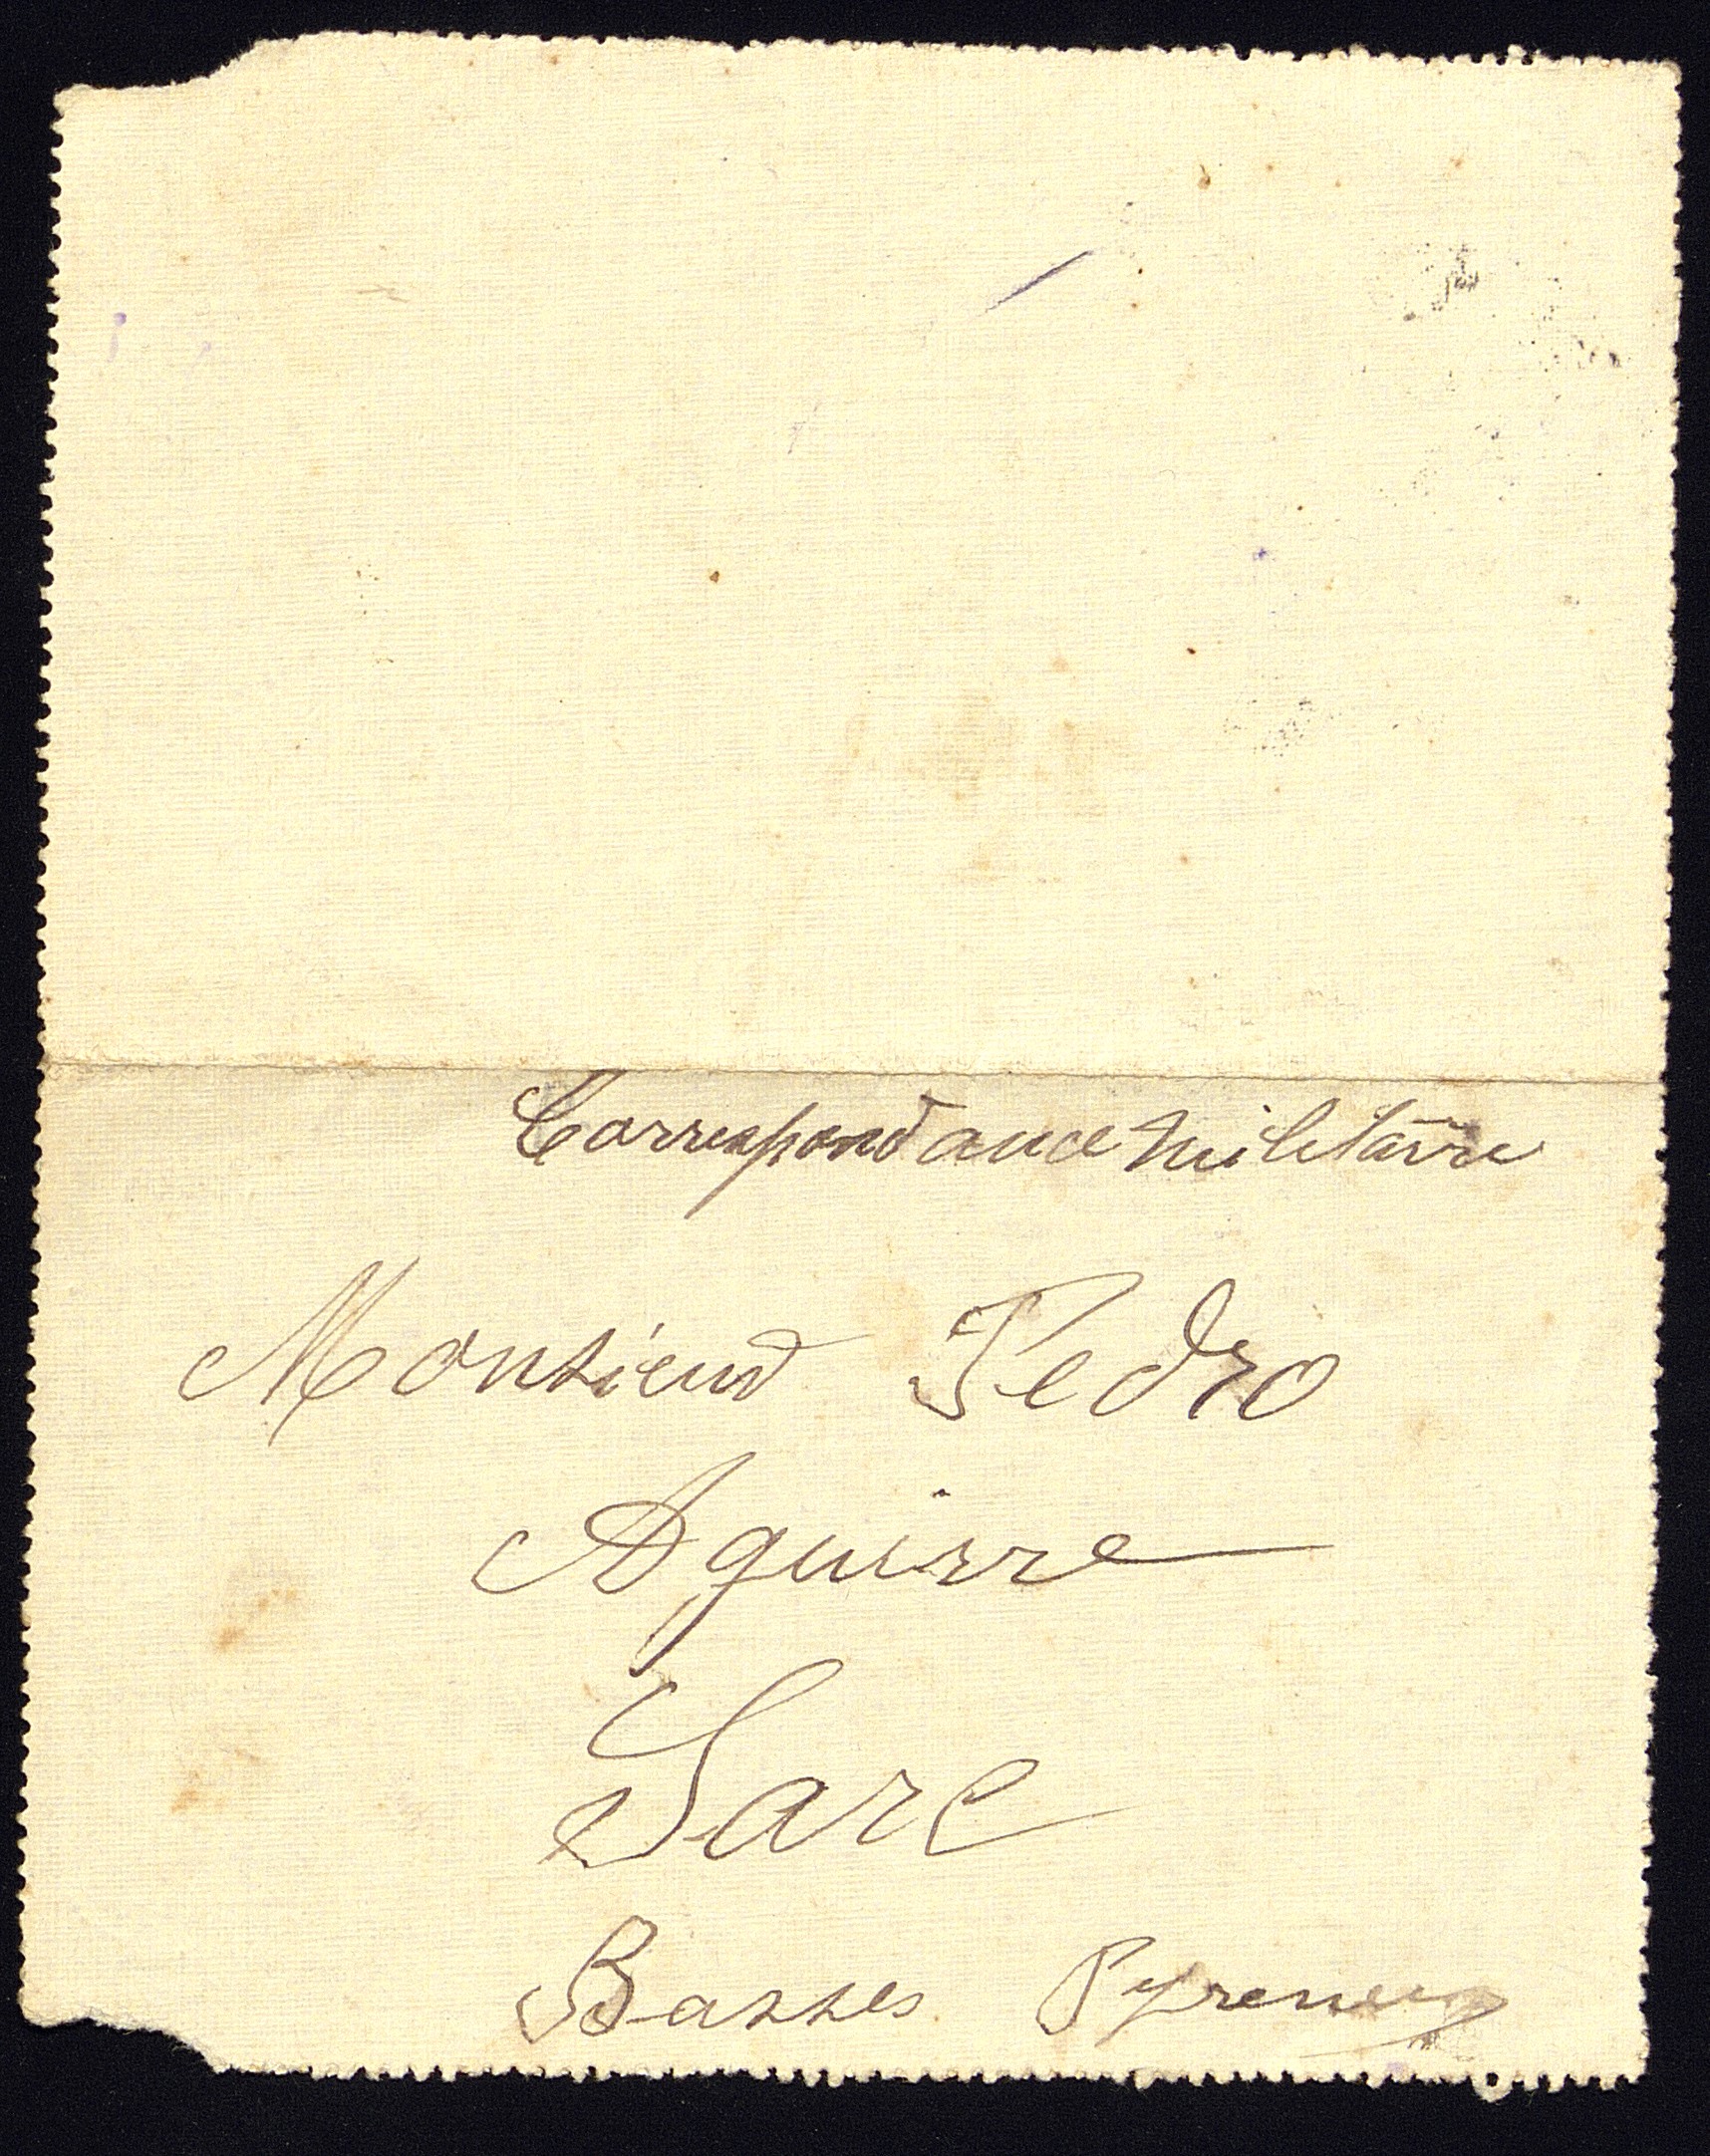 Correspondance militaire
Monsieur Pedro
Aguirre
Sare
Basses Pyrenees